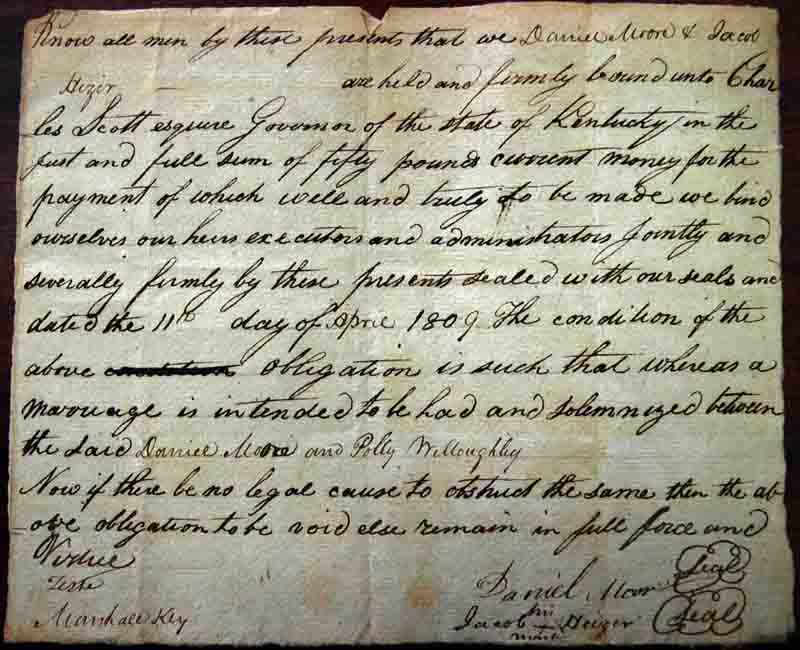 Know all men by these presents that we Daniel Moore & Jacob
Heizer — are held and firmly bound unto Char
les Scott esquire Governor of the state of Kentucky in the
just and full sum of fifty pounds current money for the
payment of which well and truly to be made we bind
ourselves our heirs executors and administrators Jointly and
severally firmly by these presents sealed with our seals and
dated the 11th day of April 1809. The condition of the
above obligation is such that whereas a
marriage is intended to be had and solemnized between
the said Daniel Moore and Polly Willoughby
Now if there be no legal cause to obstruct the same then the ab
ove obligation to be void else remain in full force and
Virtue
Teste
Marshall Key
Daniel Moore Seal
his
Jacob Heizer Seal
mark